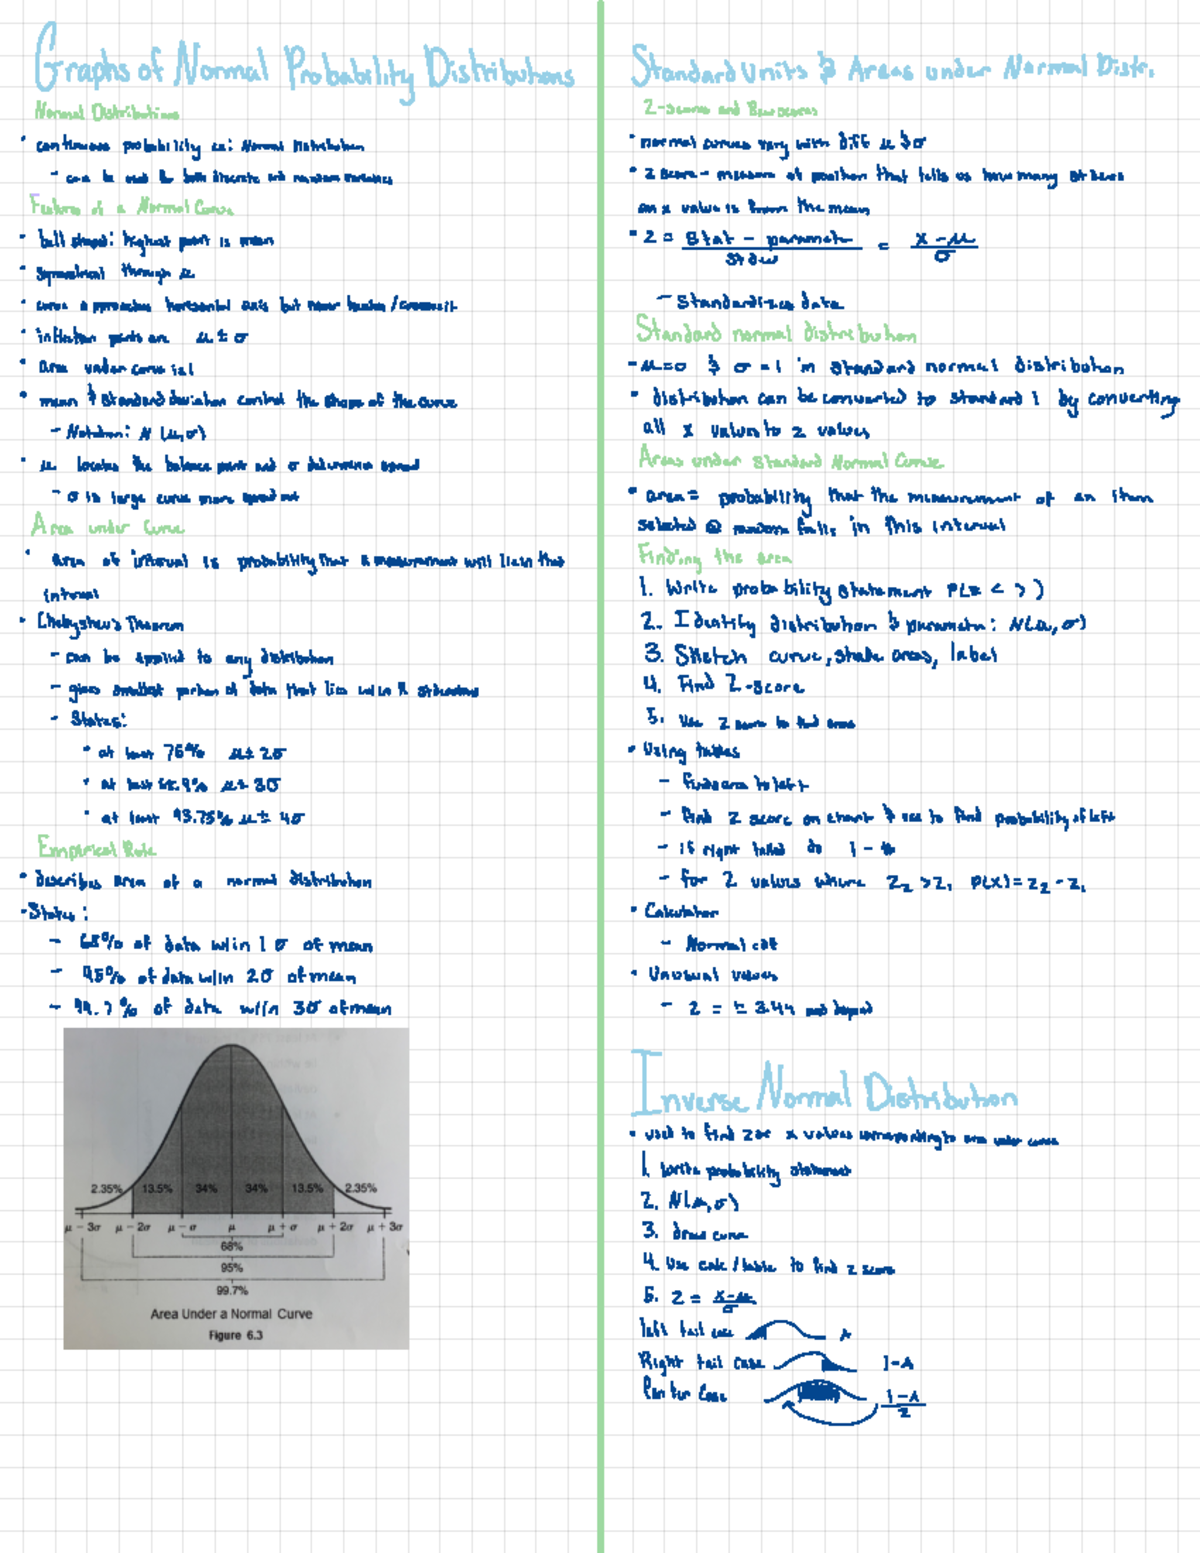 Graphs of Normal Probability Distributions
Normal Distributions
• continuous probability ex: Normal Distribution
- can be used for both discrete and random variables
Features of a Normal Curve
• bell shaped: highest point is mean
• Symmetrical through μ
• curve approaches horizontal axis but never touches/crosses it
• inflection points are μ ± σ
• Area under curve is 1
• mean & standard deviation control the shape of the curve
- Notation: N (μ,σ)
• μ locates the balance point and σ determines spread
- σ is large curve more spread out
Area under Curve
• area of interval is probability that a measurement will lie in that
interval
• Chebyshev's Theorem
- can be applied to any distribution
- gives smallest portion of data that lies w/in K
- States:
• at least 75% μ ± 2σ
• at least 88.9% μ ± 3σ
• at least 93.75% μ ± 4σ
Empirical Rule
• describes area of a normal distribution
• States:
- 68% of data w/in 1 σ of mean
- 95% of data w/in 2σ of mean
- 99.7% of data w/in 3σ of mean
2.35% 13.5% 34% 34% 13.5% 2.35%
μ − 3σ μ − 2σ μ − σ μ μ + σ μ + 2σ μ + 3σ
68%
95%
99.7%
Area Under a Normal Curve
Figure 6.3
Standard Units & Areas under Normal Distr.
Z-scores and Raw scores
• normal curves vary with diff μ & σ
• Z score - measure of position that tells us how many st devs
an x value is from the mean
• Z = Stat - parameter / st dev = x - μ / σ
- Standardizes data
Standard normal distribution
- μ=0 & σ=1 in standard normal distribution
• distribution can be converted to standard 1 by converting
all x values to z values
Areas under Standard Normal Curve
• area = probability that the measurement of an item
selected @ random falls in this interval
Finding the area
1. Write probability statement P(x < > )
2. Identify distribution & parameter: N(μ, σ)
3. Sketch curve, shade areas, label
4. Find Z-score
5. Use Z score to find area
• Using tables
- finds area to left
- find Z score on chart & use to find probability of left
- if right tailed do 1 - #
- for Z values where Z₂ > Z₁ P(x) = Z₂ - Z₁
• Calculator
- Normal cdf
• Unusual values
- Z = ± 3.49 and beyond
Inverse Normal Distribution
• used to find z or x values corresponding to area under curve
1. Write probability statement
2. N(μ, σ)
3. draw curve
4. Use calc / table to find z score
5. Z = x-μ / σ
left tail case A
Right tail case 1-A
Center Case 1-A / 2